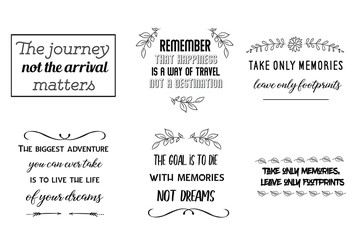 The journey
not the arrival
matters
REMEMBER
THAT HAPPINESS
IS A WAY OF TRAVEL
NOT A DESTINATION
TAKE ONLY MEMORIES
leave only footprints
THE BIGGEST ADVENTURE
you can ever take
IS TO LIVE THE LIFE
of your dreams
THE GOAL IS TO DIE
WITH MEMORIES
NOT DREAMS
TAKE ONLY MEMORIES,
LEAVE ONLY FOOTPRINTS